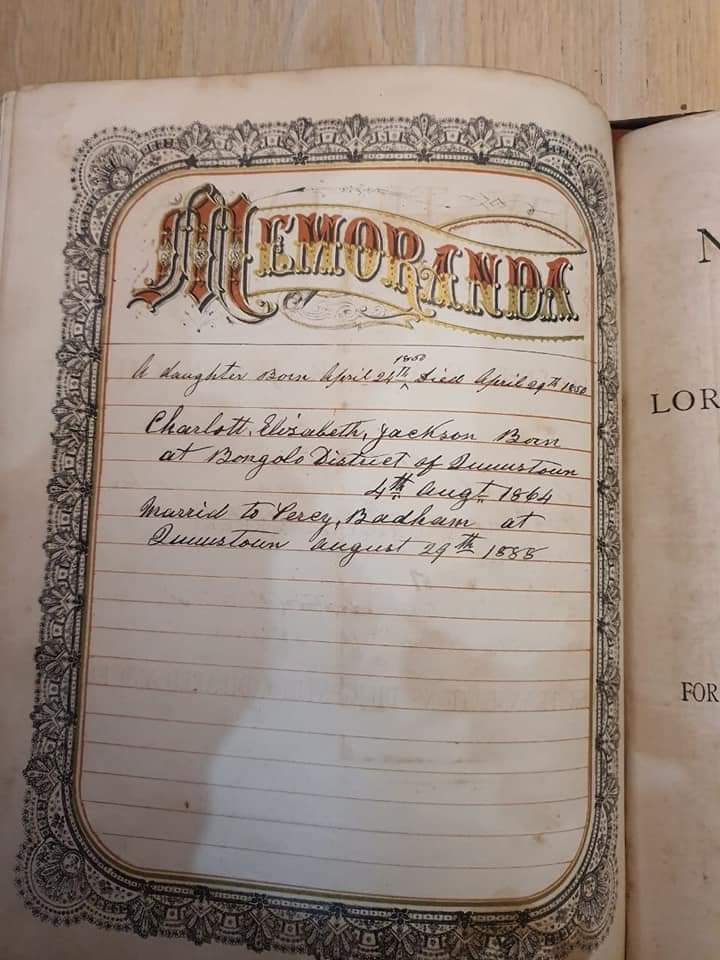 MEMORANDA
1850
A daughter Born April 24th ^ Died April 29th 1850
Charlott, Elizabeth, Jackson Born
at Bongolo District of Queenstown
4th Augt. 1864
Married to Percy, Badham at
Queenstown August 29th 1888
N
LOR
FOR